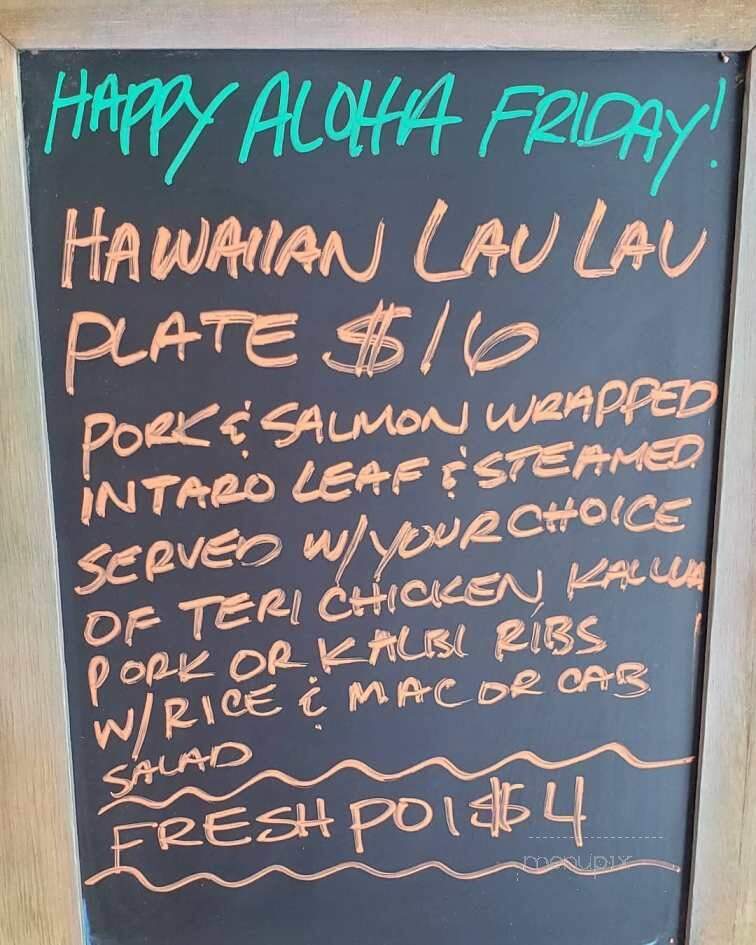 HAPPY ALOHA FRIDAY!
HAWAIIAN LAU LAU
PLATE $16
PORK & SALMON WRAPPED
IN TARO LEAF & STEAMED
SERVED W/YOUR CHOICE
OF TERI CHICKEN KALUA
PORK OR KALBI RIBS
W/RICE & MAC OR CAB
SALAD
FRESH POI $4
menupix